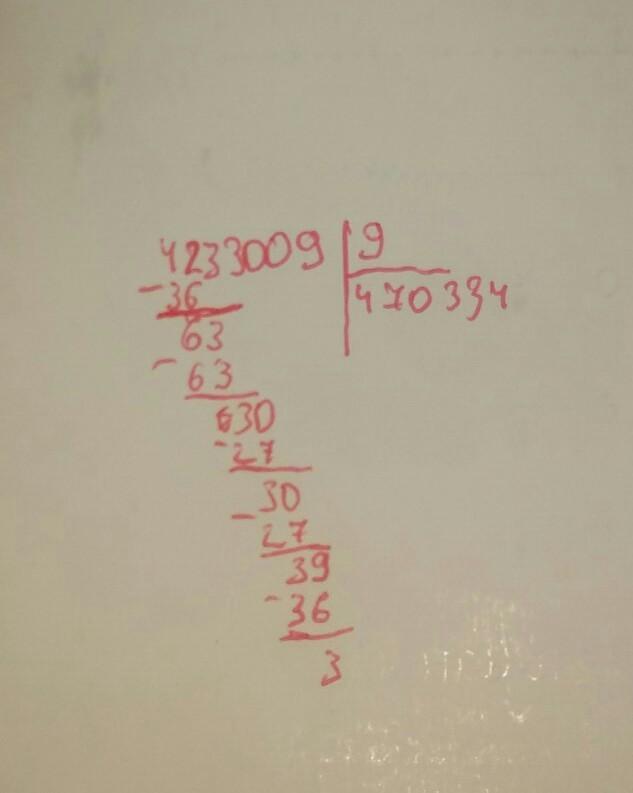 4233009 | 9
- 36 470334
63
- 63
030
- 27
30
- 27
39
- 36
3